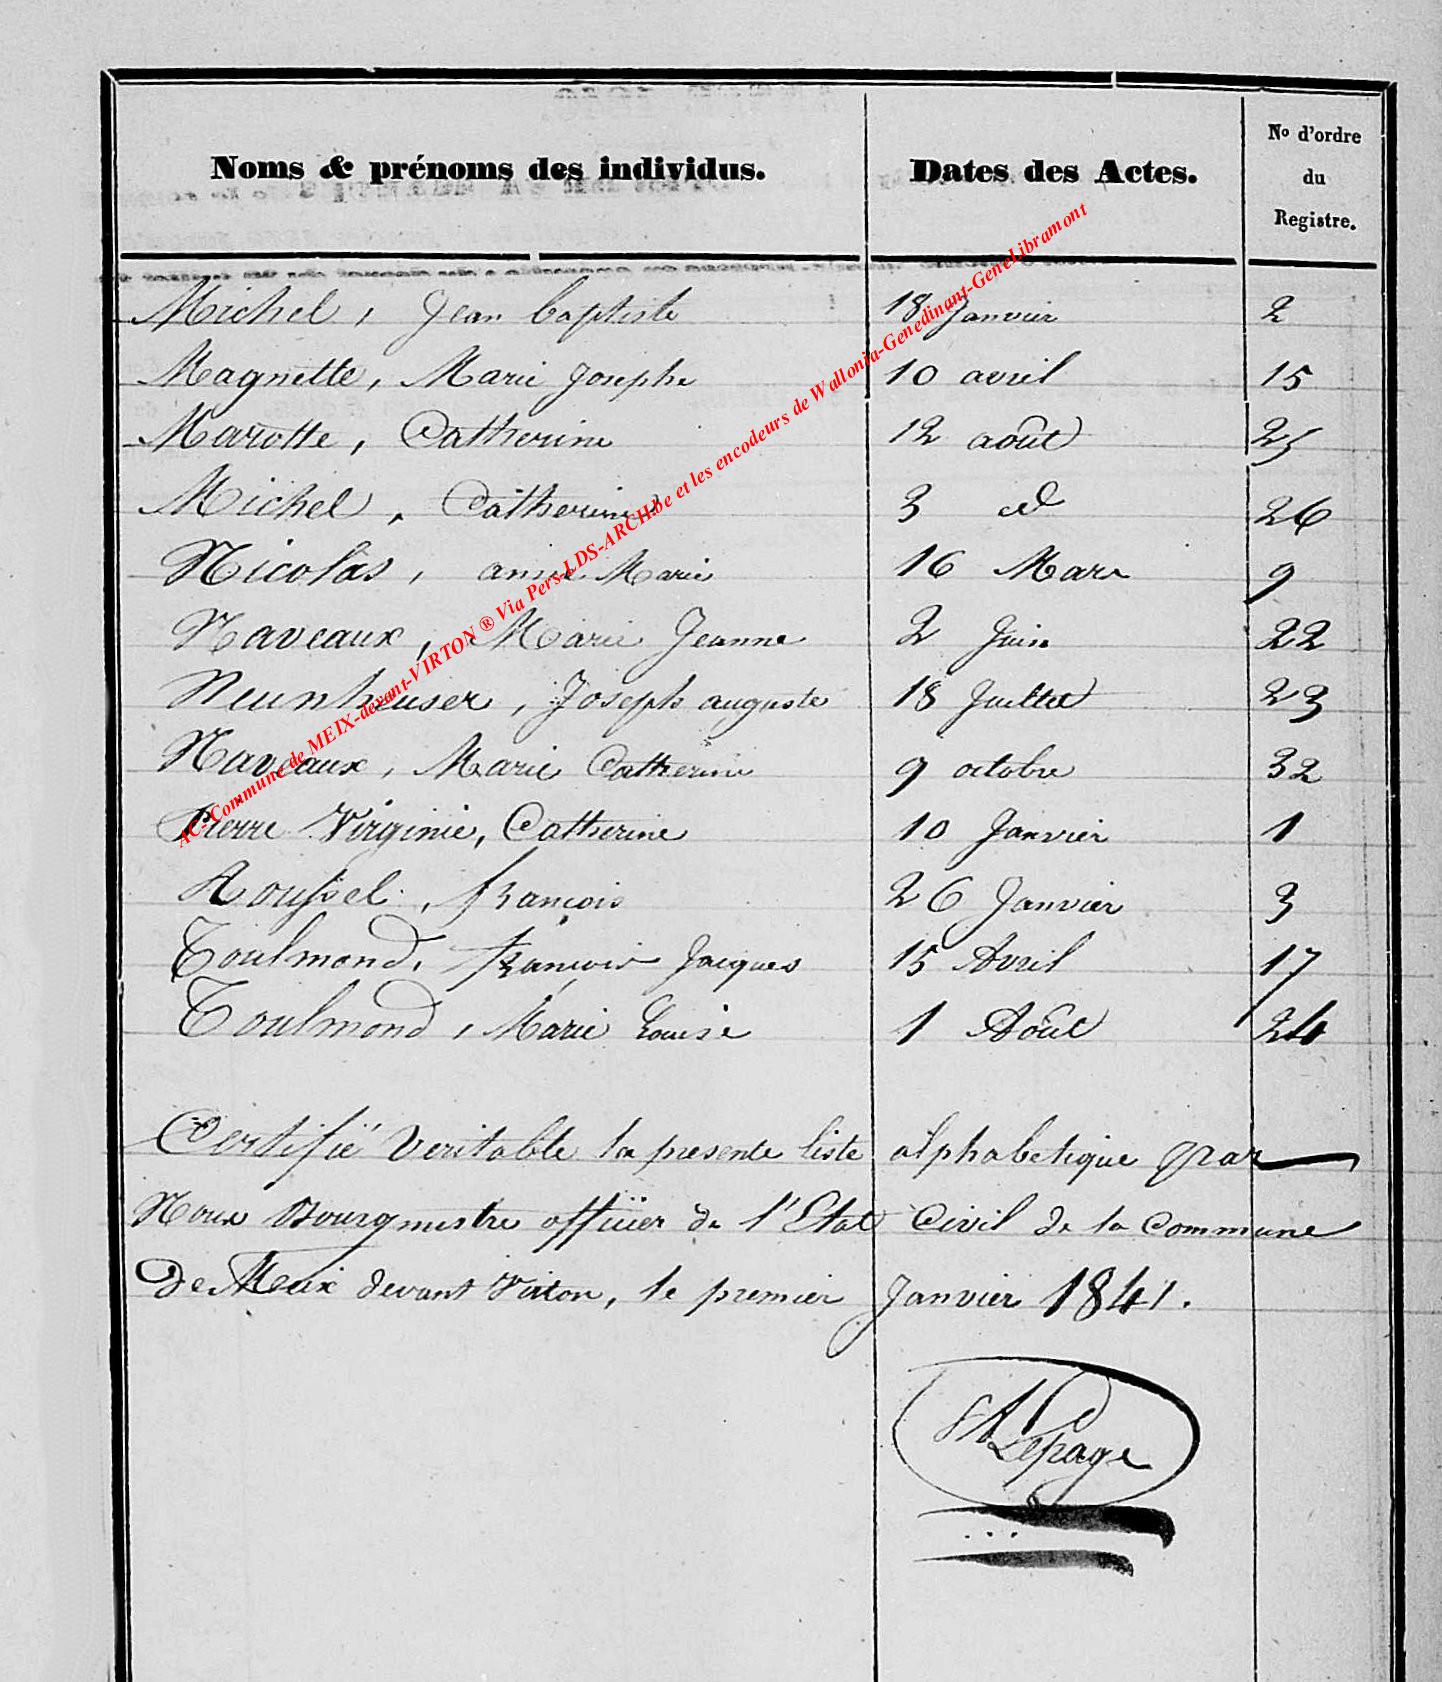 Noms & prénoms des individus. Dates des Actes. No d'ordre du Registre.
Michel, Jean baptiste 18 Janvier 2
Magnette, Marie Josephe 10 avril 15
Marotte, Catherine 12 août 25
Michel, Catherine 3 d 26
Nicolas, anne Marie 16 Mars 9
Naveaux, Marie Jeanne 2 Juin 22
Neunheuser, Joseph auguste 18 Juillet 23
Naveaux, Marie Catherine 9 octobre 32
Pierre Virginie, Catherine 10 Janvier 1
Roussel, françois 26 Janvier 3
Toulmond, françois Jacques 15 Avril 17
Toulmond, Marie Louise 1 Août 24
Certifié veritable la presente liste alphabetique par
Nous Bourgmestre officier de l'Etat Civil de la Commune
De Meix devant Virton, le premier Janvier 1841.
Lepage
AC-Commune de MEIX-devant-VIRTON ® Via Pers-LDS-ARCH.be et les encodeurs de Wallonia-Genedinant-GeneLibramont